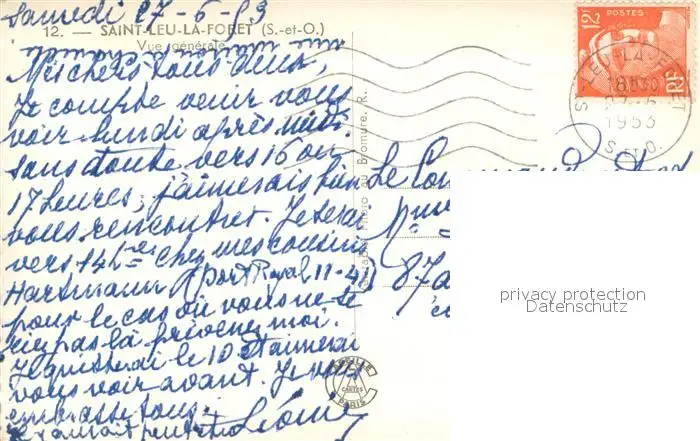 Samedi 27-6-53
12. — SAINT-LEU-LA-FORET (S.-et-O.)
Vue générale
Mes chers tous deux,
Je compte venir vous
voir lundi après midi
sans doute vers 16 ou
17 heures, j'aimerais bien
vous rencontrer. Je serai
vers 14h chez mes cousins
Hartmann Port Royal 11-41
pour le cas où vous ne se
riez pas là prévenez moi.
Je quitterai le 10 et aimerai
vous voir avant. Je vous
embrasse tous.
Léonie
Le
87
Véritable Photo au Bromure. R.
ABEILLE
CARTES
PARIS
12F
POSTES
RF
ST LEU-LA-FORET
18H30
27-6
1953
S. ET O.
privacy protection
Datenschutz